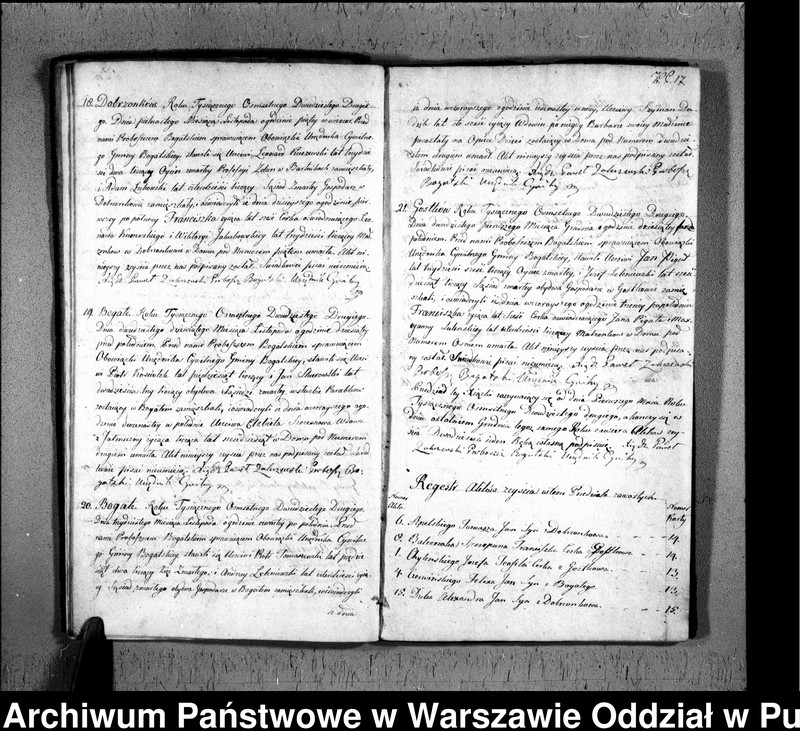 18. Dobrzonków Roku Tysiącznego Osmsetnego Dwudziestego Drugie-
go Dnia piętnastego Miesiąca Listopada ogodzinie w wieczór Przed
nami Proboszczem Bogatskim sprawującym Obowiązki Urzędnika Cywilne-
go Gminy Bogatskiey stawił się Uczciwi Leonard lat trzydzie-
ści dwa liczący Ociec zmarłey Professyi w zamieszkały,
i Adam lat czterdzieści liczący Sąsiad Zmarłey Gospodarz w
Dobrzonkowie zamieszkały, i oświadczyli iż dnia dzisieyszego ogodzinie pier-
wszey po północy Franciszka żyjąca lat sześć Corka oświadczaiącego Leo-
narda i Wiktoryi lat trzydzieści liczącey Mał-
żonków w Dobrzonkowie w Domu pod Numerem piątem umarła. Akt ni-
nieyszy zeyścia przez nas podpisany został. Świadkowie pisać nieumieią
Xiądz Paweł Zakrzewski Proboszcz Bogatski Urzędnik Cywilny
19. Bogate Roku Tysiącznego Osmsetnego Dwudziestego Drugiego.
Dnia dwudziestego dziewiątego Miesiąca Listopada ogodzinie dziesiątey
przed południem Przed nami Proboszczem Bogatskim sprawującym
Obowiązki Urzędnika Cywilnego Gminy Bogatskiey, stawili się Uczci-
wi Piotr lat pięćdziesiąt liczący i Jan lat
dwadzieścia trzy liczący obydwa Sąsiedzi zmarłey
zostaiący w Bogatem zamieszkali, i oświadczyli iż dnia wczorayszego ogo-
dzinie dwunastey w południe Uczciwa Elżbieta Wdowa
z Jałmużny żyjąca licząca lat siedmdziesiąt w Domu pod Numerem
drugiem umarła. Akt ninieyszy zeyścia przez nas podpisany został. Świad-
kowie pisać nieumieią. Xiądz Paweł Zakrzewski Proboszcz Bo-
gatski Urzędnik Cywilny
20. Bogate Roku Tysiącznego Osmsetnego Dwudziestego Drugiego,
Dnia trzydziestego Miesiąca Listopada ogodzinie czwartey po południu. Przed
nami Proboszczem Bogatskim sprawującym Obowiązki Urzędnika Cywilne-
go Gminy Bogatskiey stawili się Uczciwi Piotr Tomaszewski lat pięćdzie-
siąt dwa liczący Zmarłego, i Andrzey lat czterdzieści liczą-
cy Sąsiad zmarłego obydwa Gospodarze w Bogatem zamieszkali, i oświadczyli
iż dnia
17
iż dnia wczorayszego ogodzinie siódmey Uczciwy Szymon
lat sto sześć żyjący Wdowiec po niegdy Barbarze swoiey Małżonce
pozostały na Opiece Dzieci zostaiący w Domu pod Numerem dwudzie-
stem drugiem umarł. Akt ninieyszy zeyścia przez nas podpisany został.
Świadkowie pisać nieumieią Xiądz Paweł Zakrzewski Proboszcz
Bogatski Urzędnik Cywilny
21. Gostkow Roku Tysiącznego Osmsetnego Dwudziestego Drugiego
Dnia dwudziestego pierwszego Miesiąca Grudnia ogodzinie dziesiątey przed
południem. Przed nami Proboszczem Bogatskim sprawującym Obowiązki
Urzędnika Cywilnego Gminy Bogatskiey, stawili Uczciwi Jan
lat trzydzieści sześć liczący Ociec zmarłey, i Józef lat
liczący Sąsiad zmarłey obydwa Gospodarze w Gostkowie zamie-
szkali, i oświadczyli iż dnia wczorayszego ogodzinie trzeciey po południu
Franciszka żyjąca lat sześć Corka oświadczaiącego Jana i Mar-
yanny lat czterdzieści liczącey Małżonków w Domu pod
Numerem Osmem umarła. Akt ninieyszy zeyścia przez nas podpisa-
ny został. Świadkowie pisać nieumieią. Xiądz Paweł Zakrzewski
Proboszcz Bogatski Urzędnik Cywilny
zaczynaiący się od dnia Pierwszego Maia Roku
Tysiącznego Osmsetnego Dwudziestego drugiego, a kończący się w
dniu ostatnim Grudnia tegoż samego Roku zawiera Aktow zey-
ścia Dwadzieścia ieden podpisuię. Xiądz Paweł
Zakrzewski Proboszcz Bogatski Urzędnik Cywilny
Regestr Aktów zeyścia w tem zawartych
Numer Aktu
Numer Karty
6. Tomasza Jan Syn z Dobrzonkowa. 14.
8. Szczepana Franciszka Corka z Gostkowa 14.
1. Chylińskiego Józefa Teofila Corka z Gostkowa. 13.
4. Czerwińskiego Felixa Jan Syn z Bogatego 13.
15. Duka Alexandra Jan Syn z Dobrzonkowa. 15.
Archiwum Państwowe w Warszawie Oddział w Pu